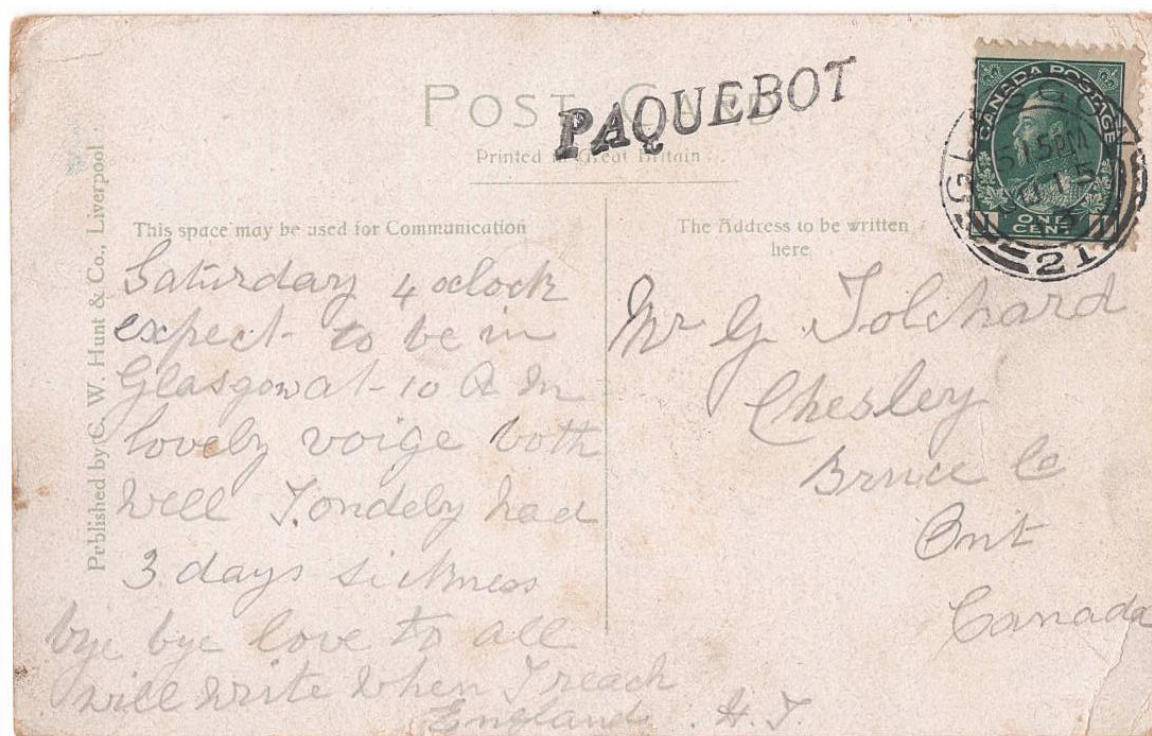 POST CARD
PAQUEBOT
Printed in Great Britain
CANADA POSTAGE
1 ONE CENT 1
GLASGOW
5 15PM
21
Published by C. W. Hunt & Co., Liverpool
This space may be used for Communication
Saturday 4 oclock
expect to be in
Glasgow at 10 A M
lovely voige both
well I ondeby had
3 days sickness
bye bye love to all
will write when I reach
England. H. T.
The Address to be written
here
Mr G Tolchard
Chesley
Bruce Co
Ont
Canada